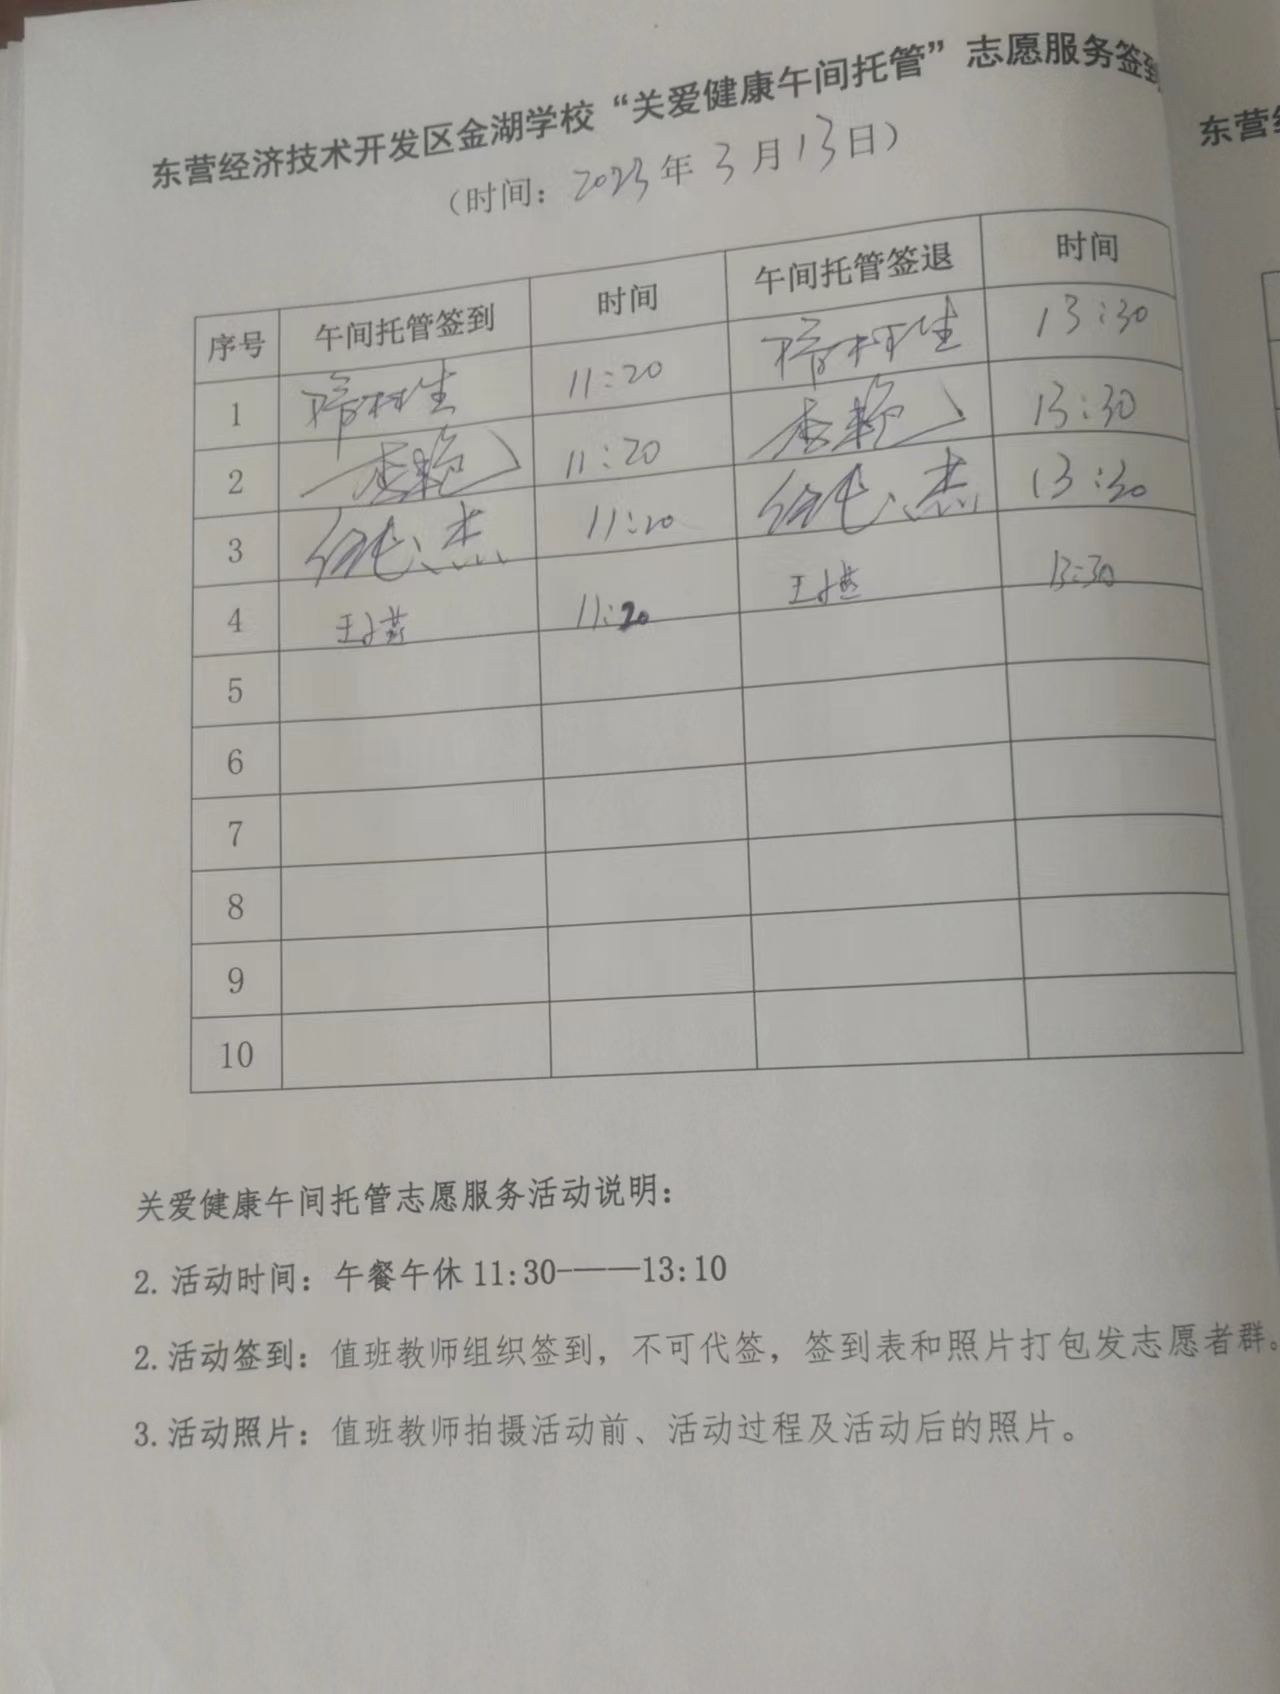 东营经济技术开发区金湖学校“关爱健康午间托管”志愿服务签到
（时间：2023年3月13日）
序号 午间托管签到 时间 午间托管签退 时间
1 11:20 13:30
2 11:20 13:30
3 11:20 13:30
4 11:20 13:30
5
6
7
8
9
10
关爱健康午间托管志愿服务活动说明：
2.活动时间：午餐午休11:30-——13:10
2.活动签到：值班教师组织签到，不可代签，签到表和照片打包发志愿者群。
3.活动照片：值班教师拍摄活动前、活动过程及活动后的照片。
东营